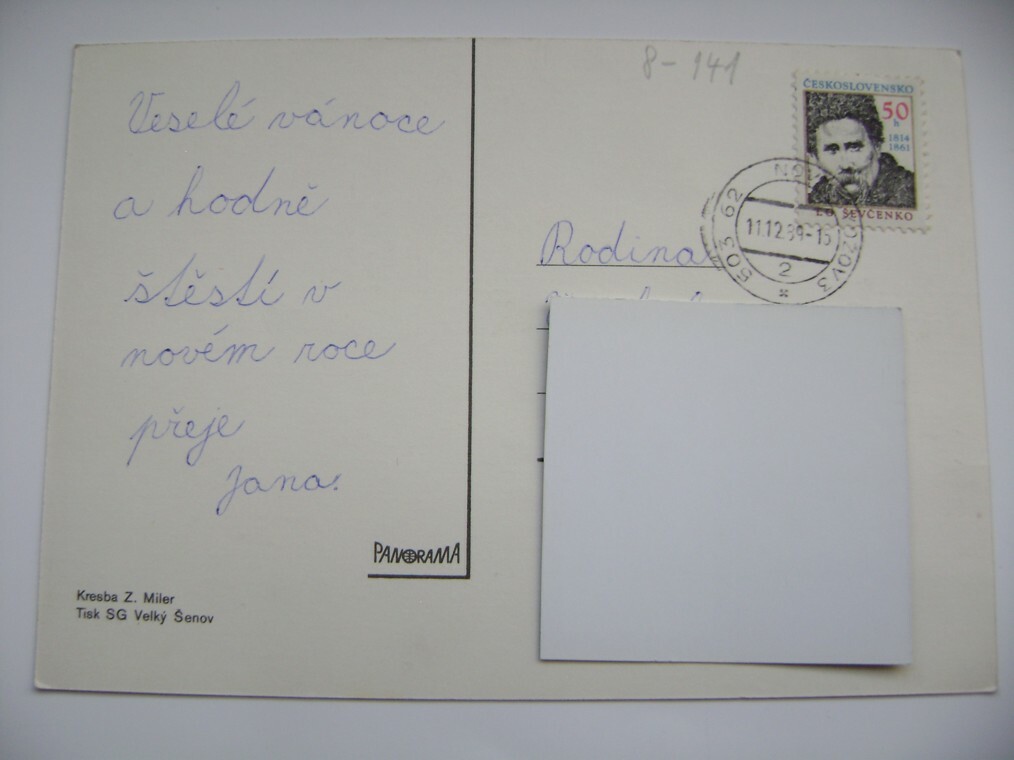 8-141
ČESKOSLOVENSKO
50
h
1814
1861
T.G. ŠEVČENKO
503 62
11.12.89-15
2
Veselé vánoce
a hodně
štěstí v
novém roce
přeje
Jana.
Rodina
PANORAMA
Kresba Z. Miler
Tisk SG Velký Šenov